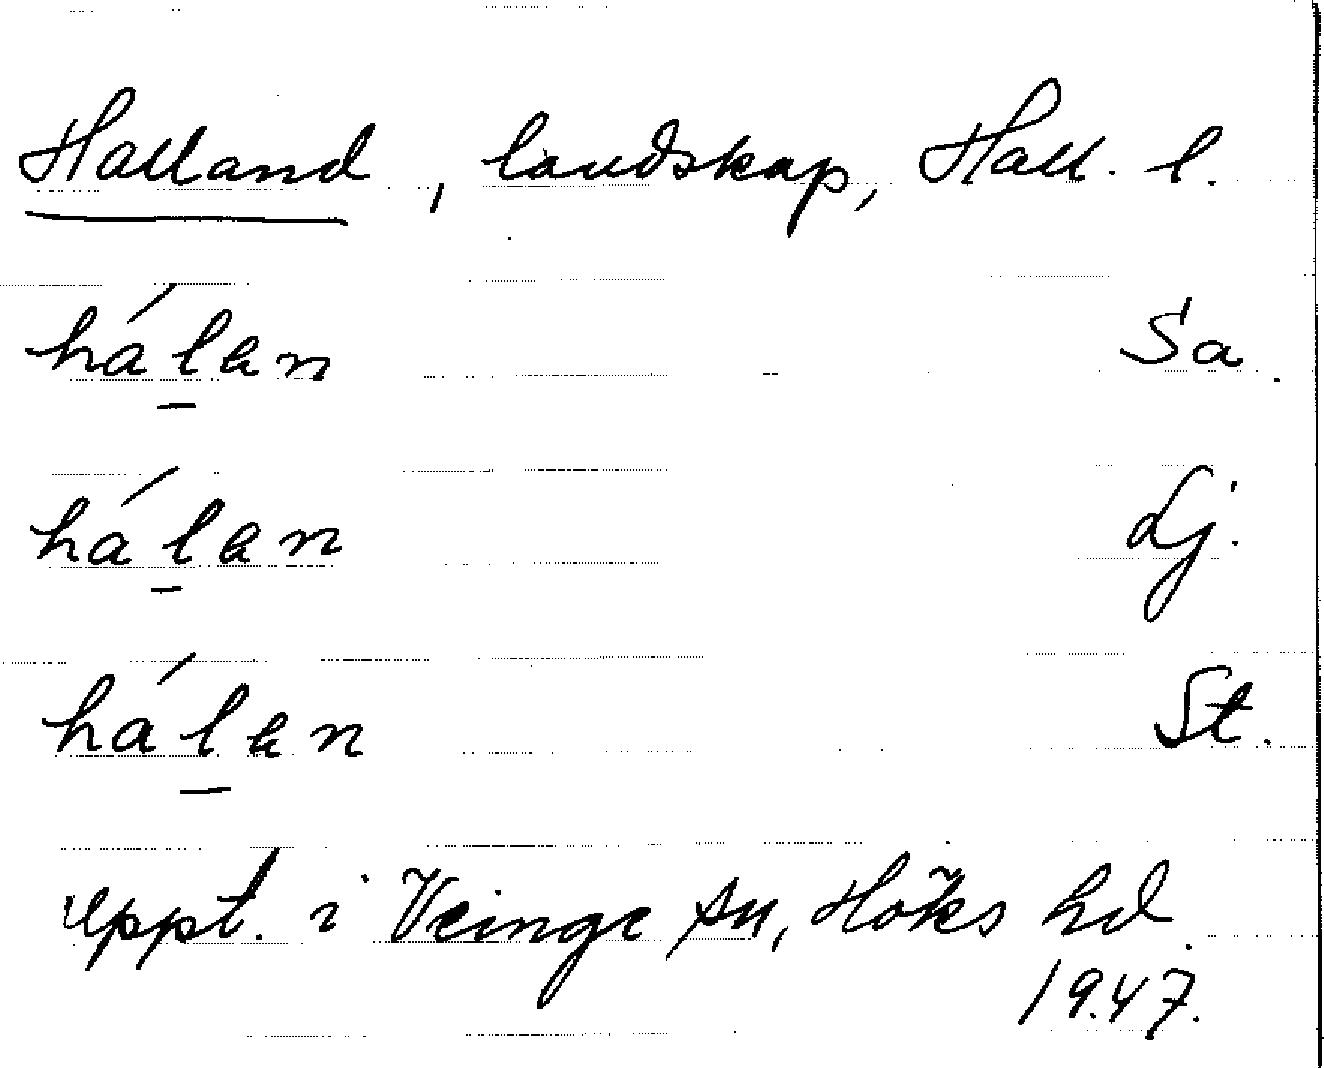 Halland, landskap, Hall. l.
há l̲an Sa.
há l̲an Lj.
há l̲an St.
uppt. i Veinge sn, Höks hd.
1947.